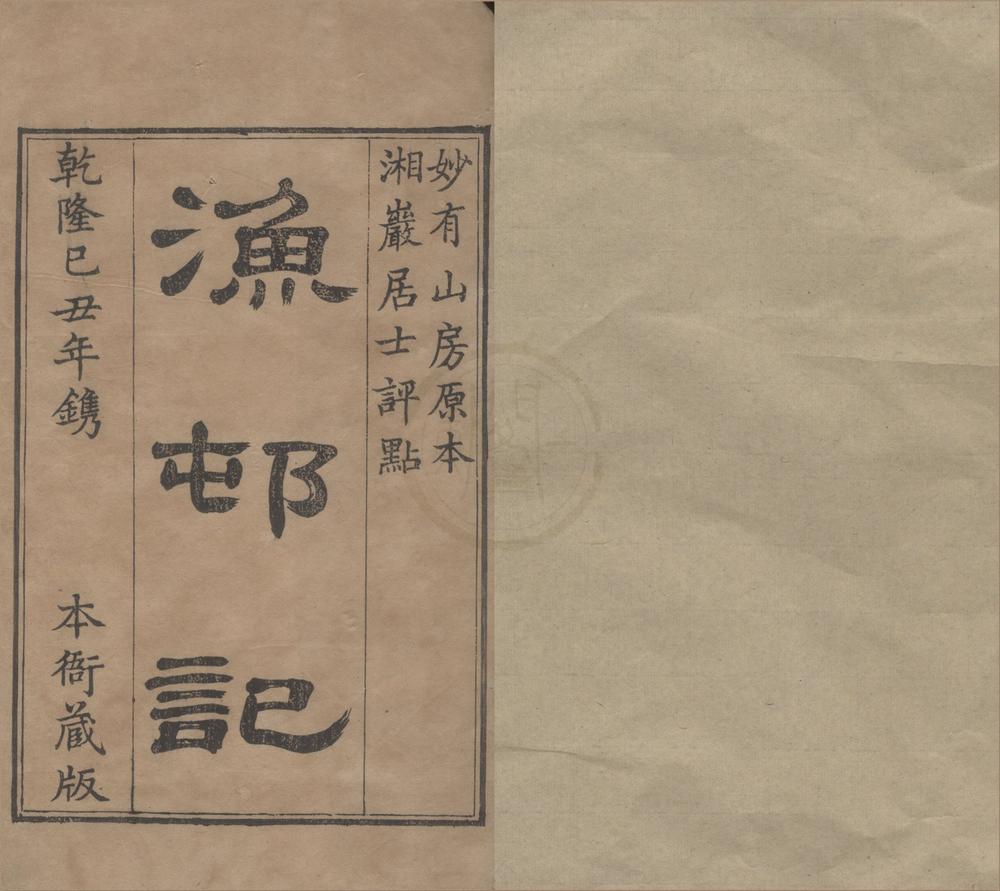 妙有山房原本
湘巖居士評點
漁邨記
乾隆己丑年鐫
本衙蔵版